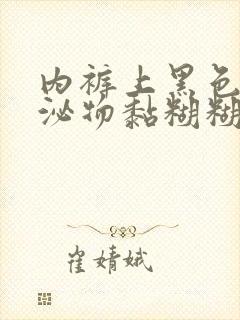 内裤上黑色
泌物黏糊糊
崔婧娥